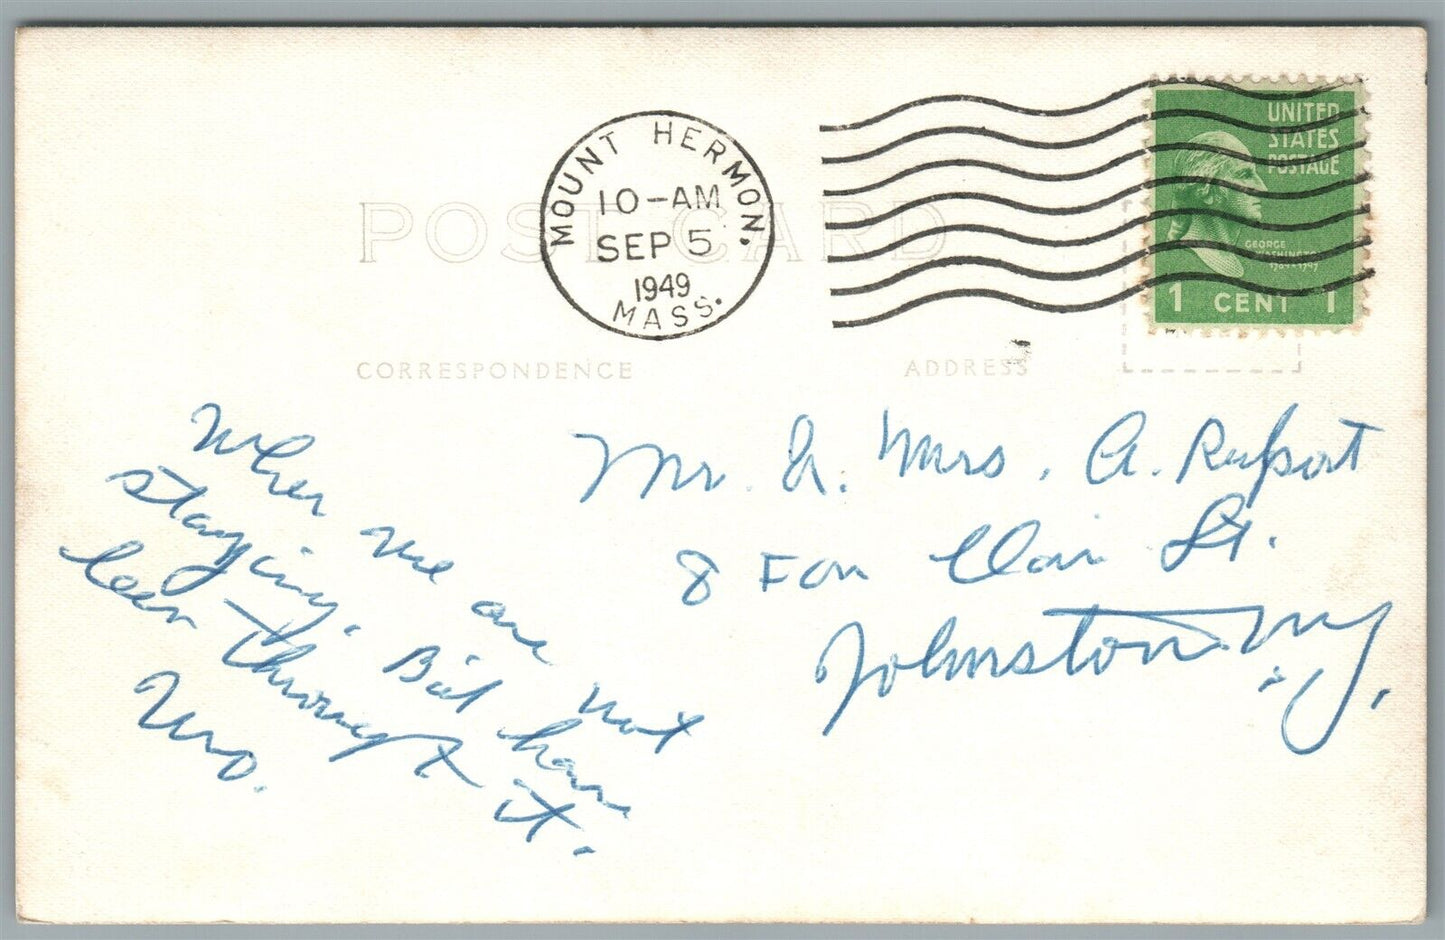 UNITED
STATES
POSTAGE
GEORGE
WASHINGTON
1789-1797
1 CENT 1
MOUNT HERMON.
10-AM
SEP 5
1949
MASS.
POST CARD
CORRESPONDENCE
ADDRESS
Mr. & Mrs. A. Rupert
8 Fon Clair St.
Johnstown N.Y.
Where we are
staying. But not
been through it. have